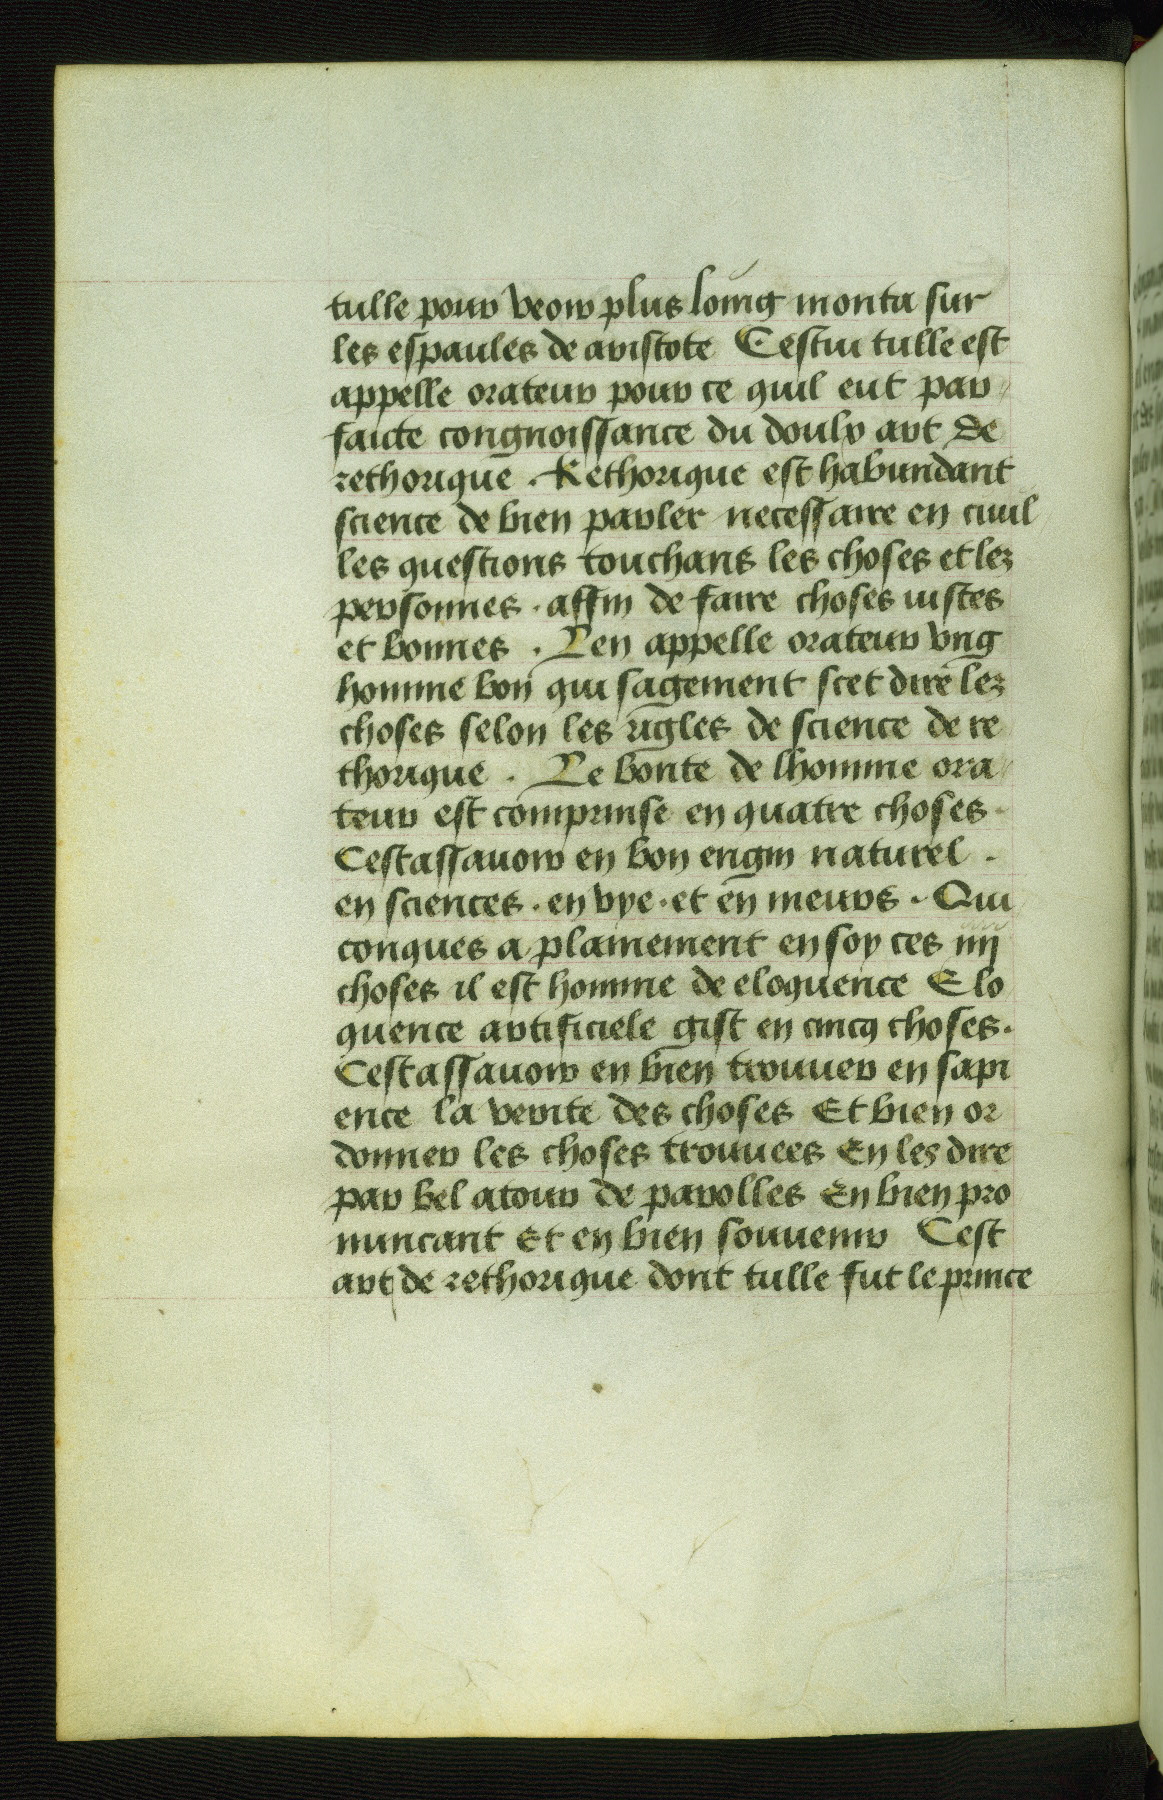 tulle pour veoir plus loing monta sur
les espaules de aristote Cestui tulle est
appelle orateur pour ce quil eut par
faicte congnoissance du doulx art de
rethorique . Rethorique est habundant
science de bien parler necessaire en ciuil
les questions touchans les choses et les
personnes . affin de faire choses iustes
et bonnes . Len appelle orateur vng
homme bon qui sagement scet dire les
choses selon les rigles de science de re
thorique . Le bonte de lhomme ora
teur est comprinse en quatre choses .
Cestassauoir en bon engin naturel .
en sciences . en vye . et en meurs . Qui
conques a plainement en soy ces iiij
choses il est homme de eloquence Elo
quence artificiele gist en cincq choses .
Cestassauoir en bien trouuer en sapi
ence la verite des choses Et bien or
donner les choses trouuees En les dire
par bel atour de parolles En bien pro
nuncant Et en bien souuenir Cest
art de rethorique dont tulle fut le prince